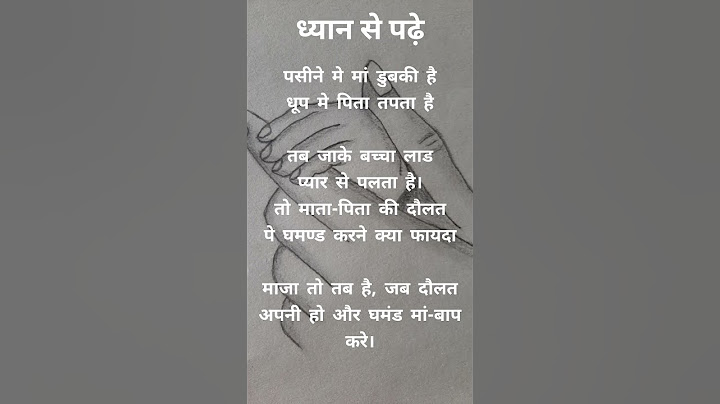 ध्यान से पढ़े
पसीने मे मां डुबकी है
धूप मे पिता तपता है
तब जाके बच्चा लाड
प्यार से पलता है।
तो माता-पिता की दौलत
पे घमण्ड करने क्या फायदा
माजा तो तब है, जब दौलत
अपनी हो और घमंड मां-बाप
करे।